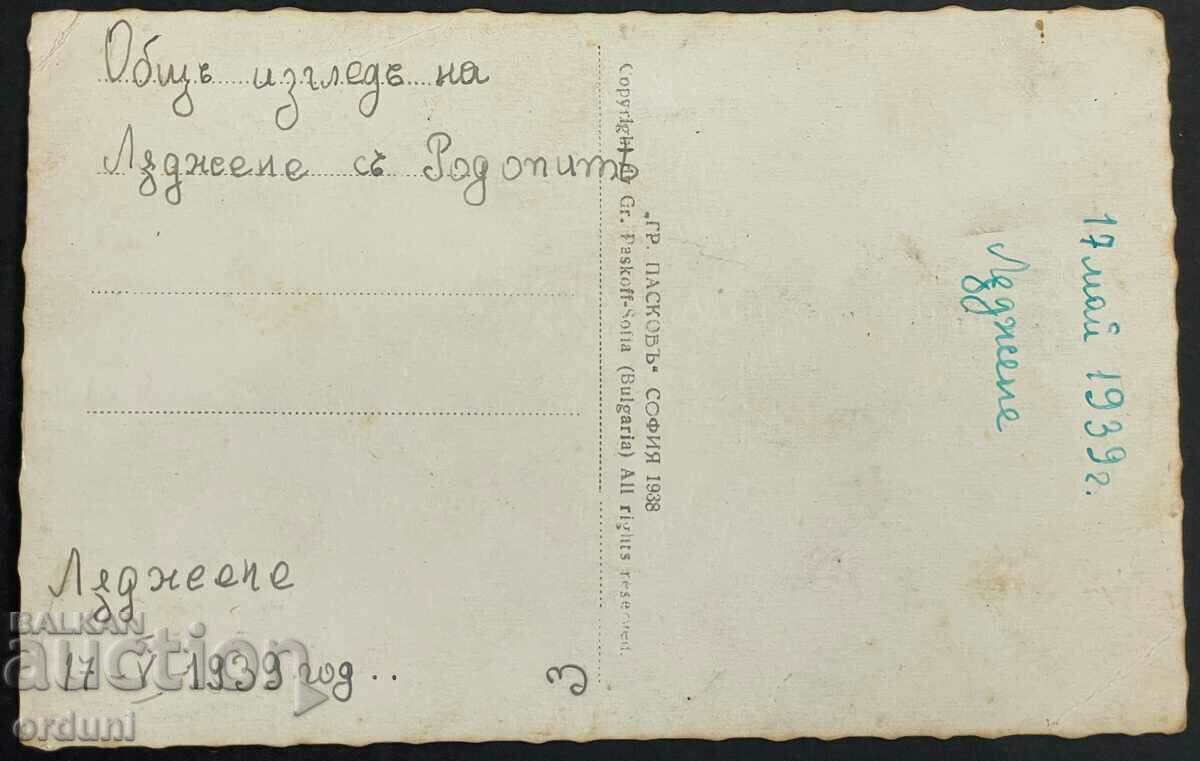 Общъ изгледъ на
Лѫджене съ Родопите
Лѫджене
17 V 1939 год..
3
Copyright by Gr. Paskoff-Sofia (Bulgaria) All rights reserved.
„ГР. ПАСКОВЪ“ СОФИЯ 1938
Лѫджене
17 май 1939 г.
BALKAN
auction
orduni